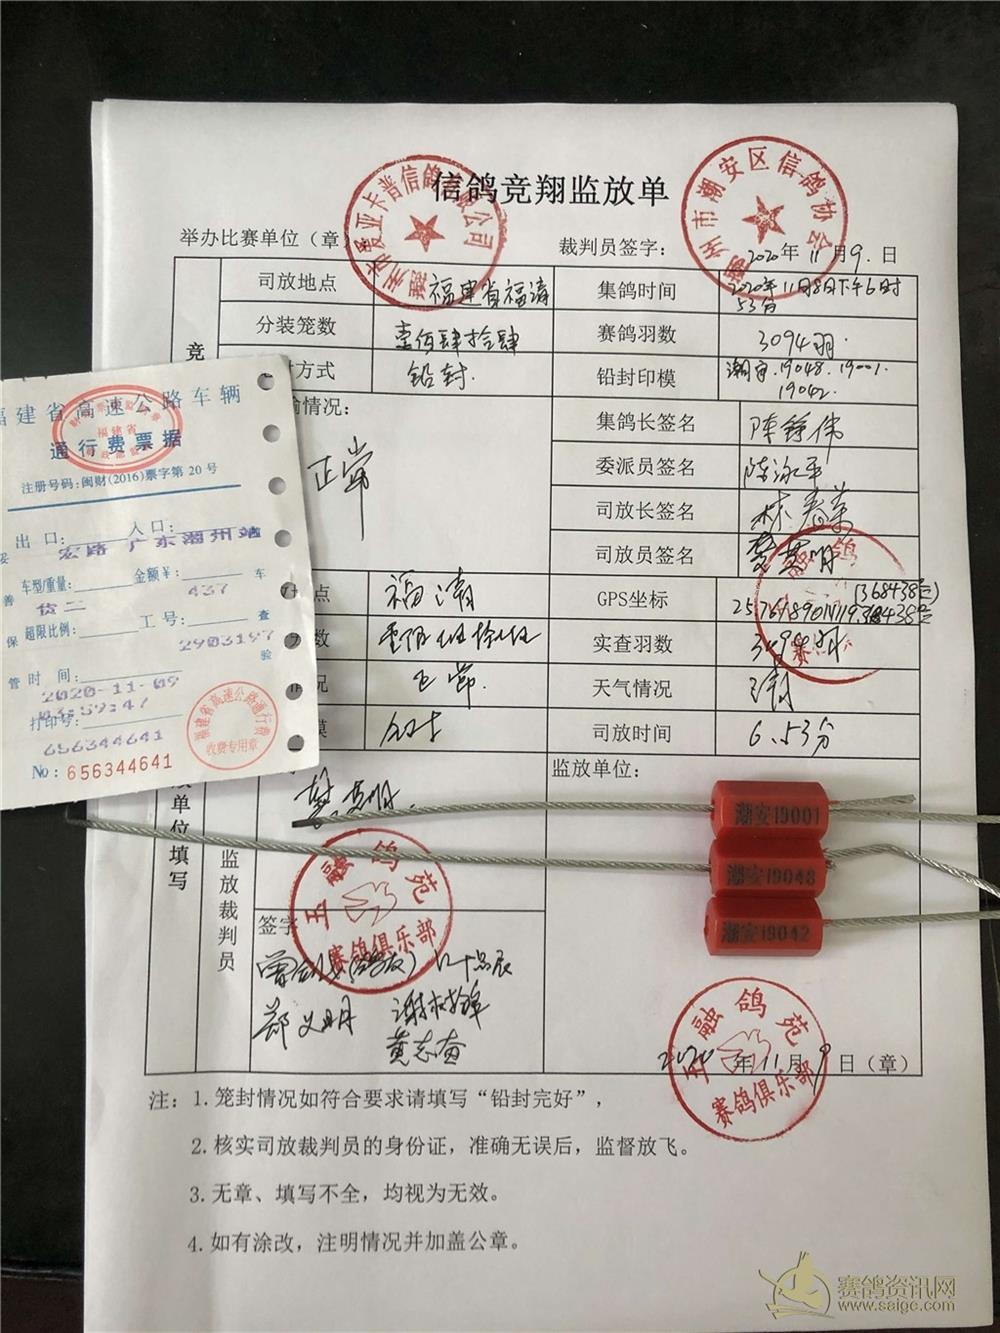 信鸽竞翔监放单
举办比赛单位（章）
裁判员签字：
2020年11月9日
司放地点 福建省福清 集鸽时间 2020年11月8日下午6时53分
分装笼数 壹佰肆拾肆 赛鸽羽数 3094羽.
方式 铅封. 铅封印模 潮安.19048.19001.19042.
情况：
正常
集鸽长签名
委派员签名
司放长签名 林春荣
司放员签名
点 福清 GPS坐标 (368438
数 实查羽数
况 正常. 天气情况 晴
模 司放时间 6.53分
监放单位：
单位填写
监放裁判员
签字
郑义明
黄志奋
2020年11月9日（章）
注：1.笼封情况如符合要求请填写“铅封完好”，
2.核实司放裁判员的身份证，准确无误后，监督放飞。
3.无章、填写不全，均视为无效。
4.如有涂改，注明情况并加盖公章。
亚卡普信鸽
潮安区信鸽协会
融鸽
五融鸽苑
赛鸽俱乐部
五融鸽苑
赛鸽俱乐部
福建省高速公路车辆
通行费票据
福建省
注册号码：闽财(2016)票字第20号
出口： 入口：
宏路 广东潮州站
车型/重量： 金额￥： 车
货二 437
超限比例： 工号： 查
2903197
管时间： 验
2020-11-09
03:59:47
打印号：
656344641
No：656344641
福建省高速公路通行费
收费专用章
潮安19001
潮安19048
潮安19042
赛鸽资讯网
www.saige.com